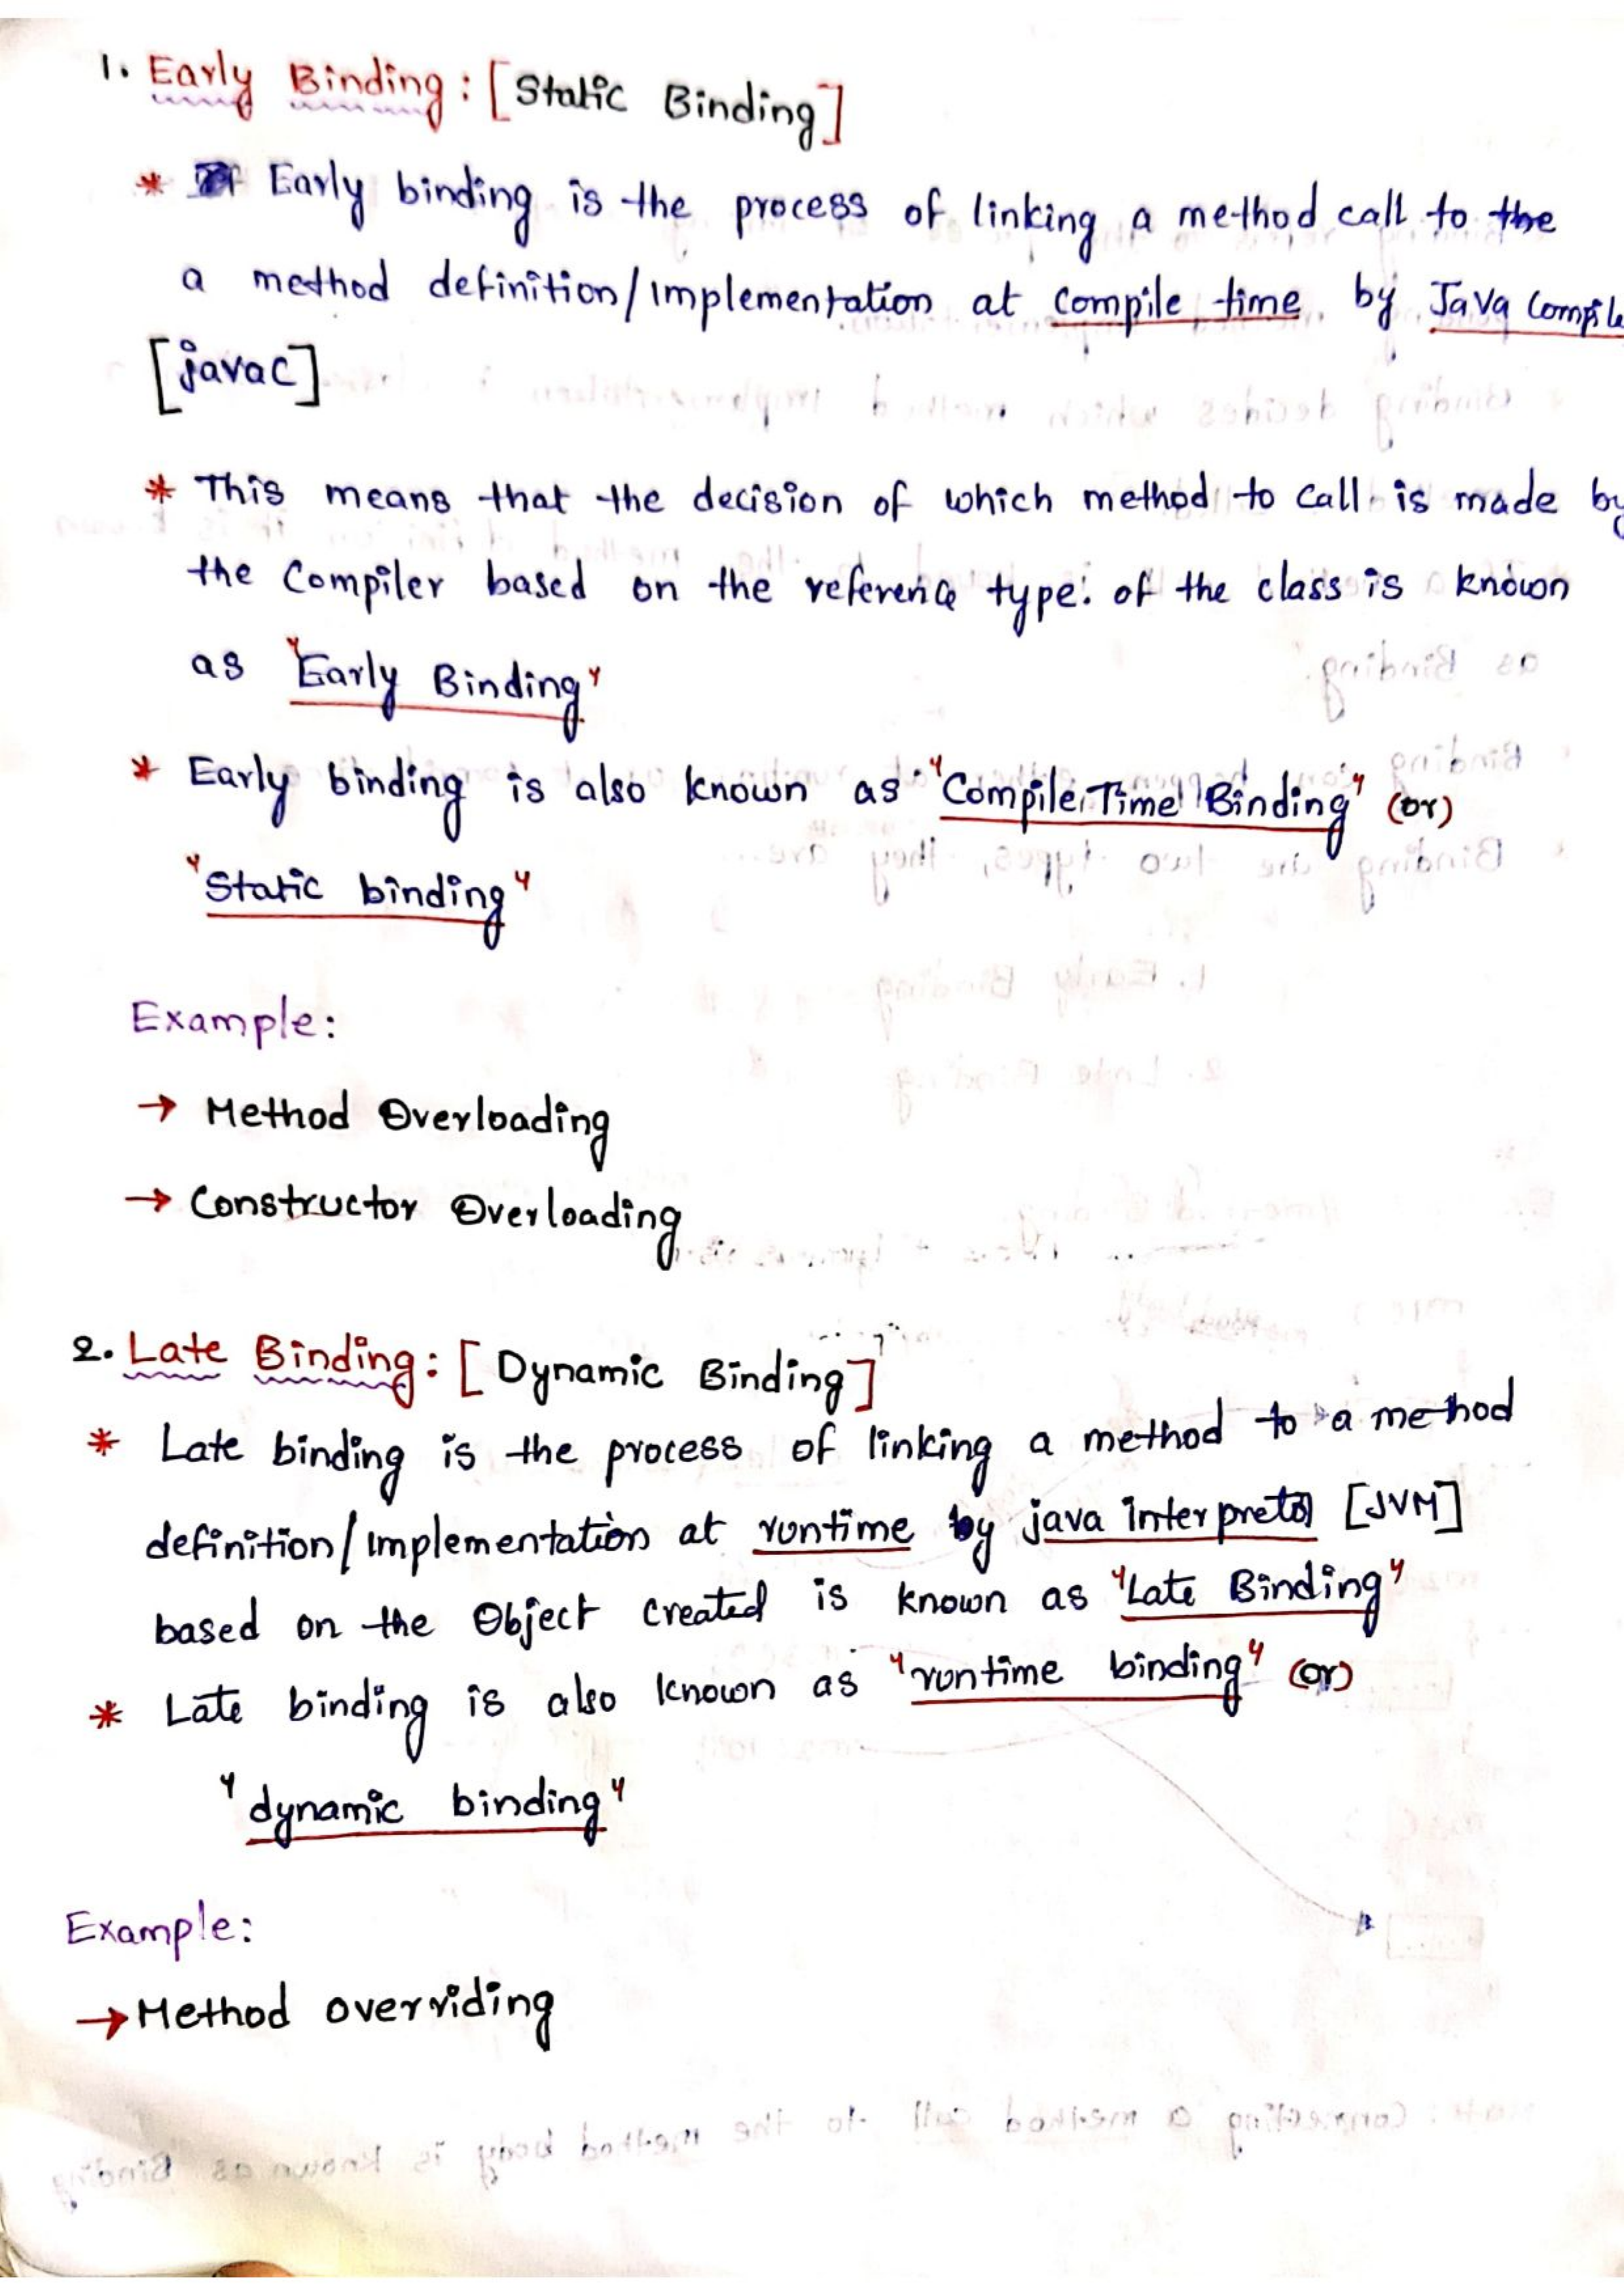 1. Early Binding: [Static Binding]
* Early binding is the process of linking a method call to the
a method definition/implementation at compile time by Java Compile
[javac]
* This means that the decision of which method to call is made by
the Compiler based on the reference type of the class is known
as "Early Binding"
* Early binding is also known as "Compile Time Binding" (or)
"Static binding"
Example:
→ Method Overloading
→ Constructor Overloading
2. Late Binding: [Dynamic Binding]
* Late binding is the process of linking a method to a method
definition/implementation at runtime by java interpretor [JVM]
based on the Object created is known as "Late Binding"
* Late binding is also known as "runtime binding" (or)
"dynamic binding"
Example:
→ Method overriding